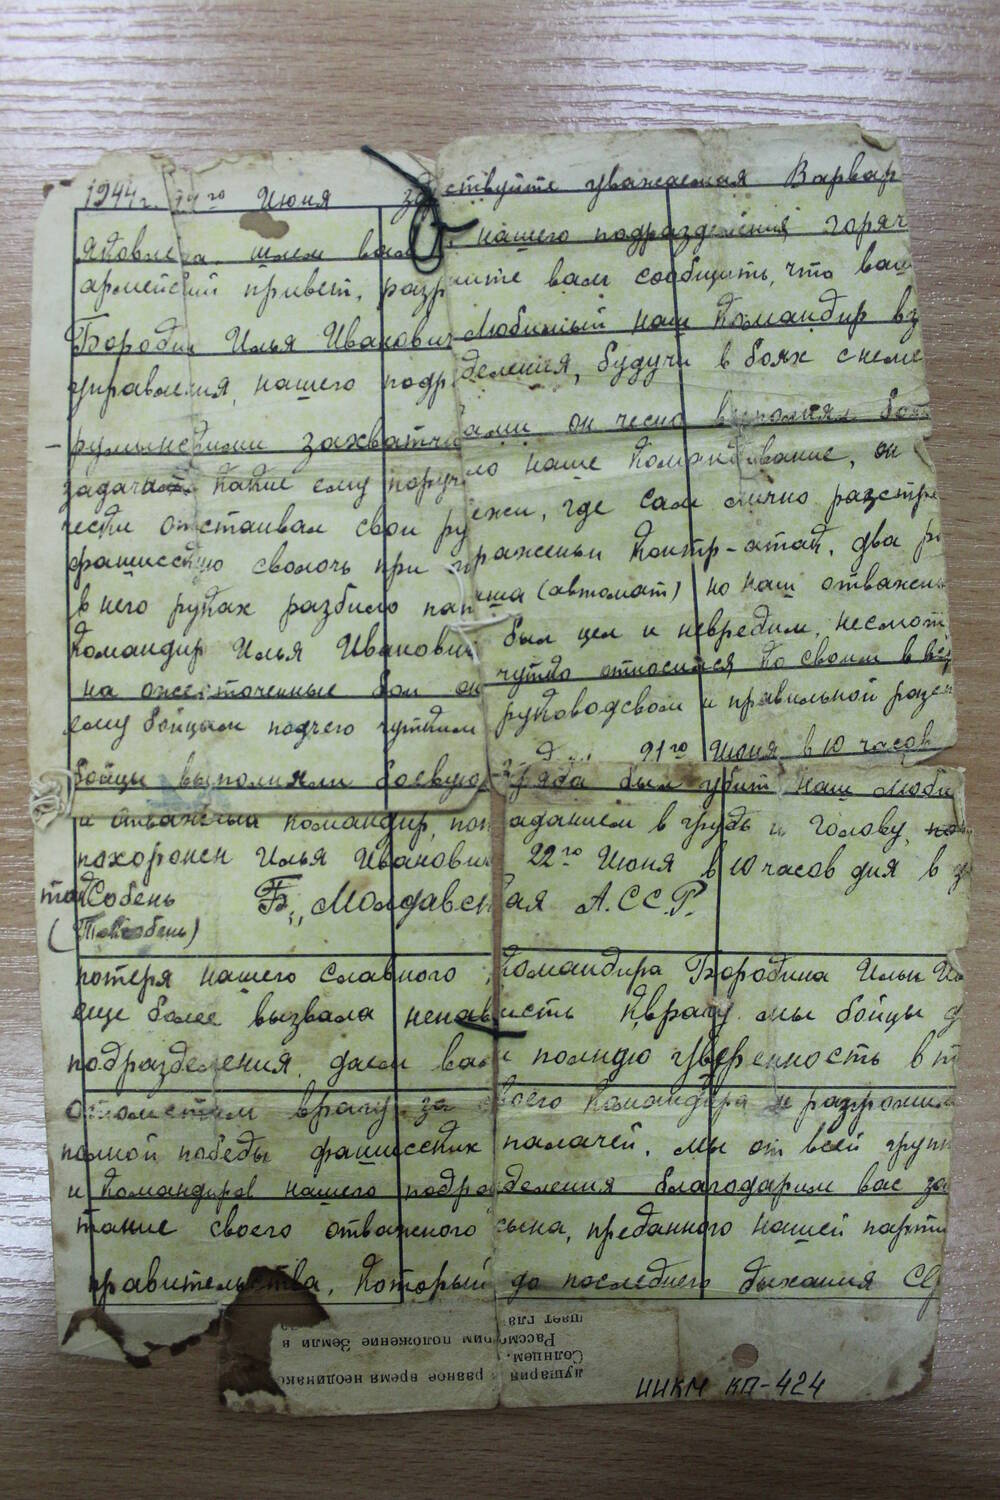 1944 г. го Июня ствуйте уважаемая Варвар
шлем вам нашего подразделения горяч
армейский привет, разр шите вам сообщить, что ваш
Бородин Илья Иванович Любимый наш командир вз
управления, нашего подр деления, будучи в боях с неме
- румынскими захватчи ами он чесно выполнял
задачи какие ему поруч ло наше командивание, он
отстаивал свои ру ежи, где сам лично разстре
сволочь при траженьи контр-атак, два
в него руках разбило пап ша (автомат) но наш отважен
командир Илья Иванович был цел и невредим, несмот
на ожесточенные бои он чутко относился ко своим
ему бойцам подчего чутким руководсвом и правильной
21го Июня в 10 часов
бойцы выполняли боевую был убит наш люби
и отважный командир, поп аданием в грудь и голову,
похоронен Илья Иванович 22го Июня в 10 часов дня в
Собень Б., Молдавск ая А.С.С.Р.
потеря нашего славного командира Бородина Ильи Ив
еще более вызвала ненависть к врагу мы бойцы
подразделения, даем вам полную уверенность в т
отомстим врагу за воего командира и разгромим
полной победы фашисских палачей, мы от всей груп
и командиров нашего подра деления благодарим вас за
тание своего отважного сына, преданного нашей парти
правительства, который до последнего дыхания
щает гла
Рассмо рим положение Земли в
Солнцем.
лушария равное время неодинако
ИИКМ КП-424